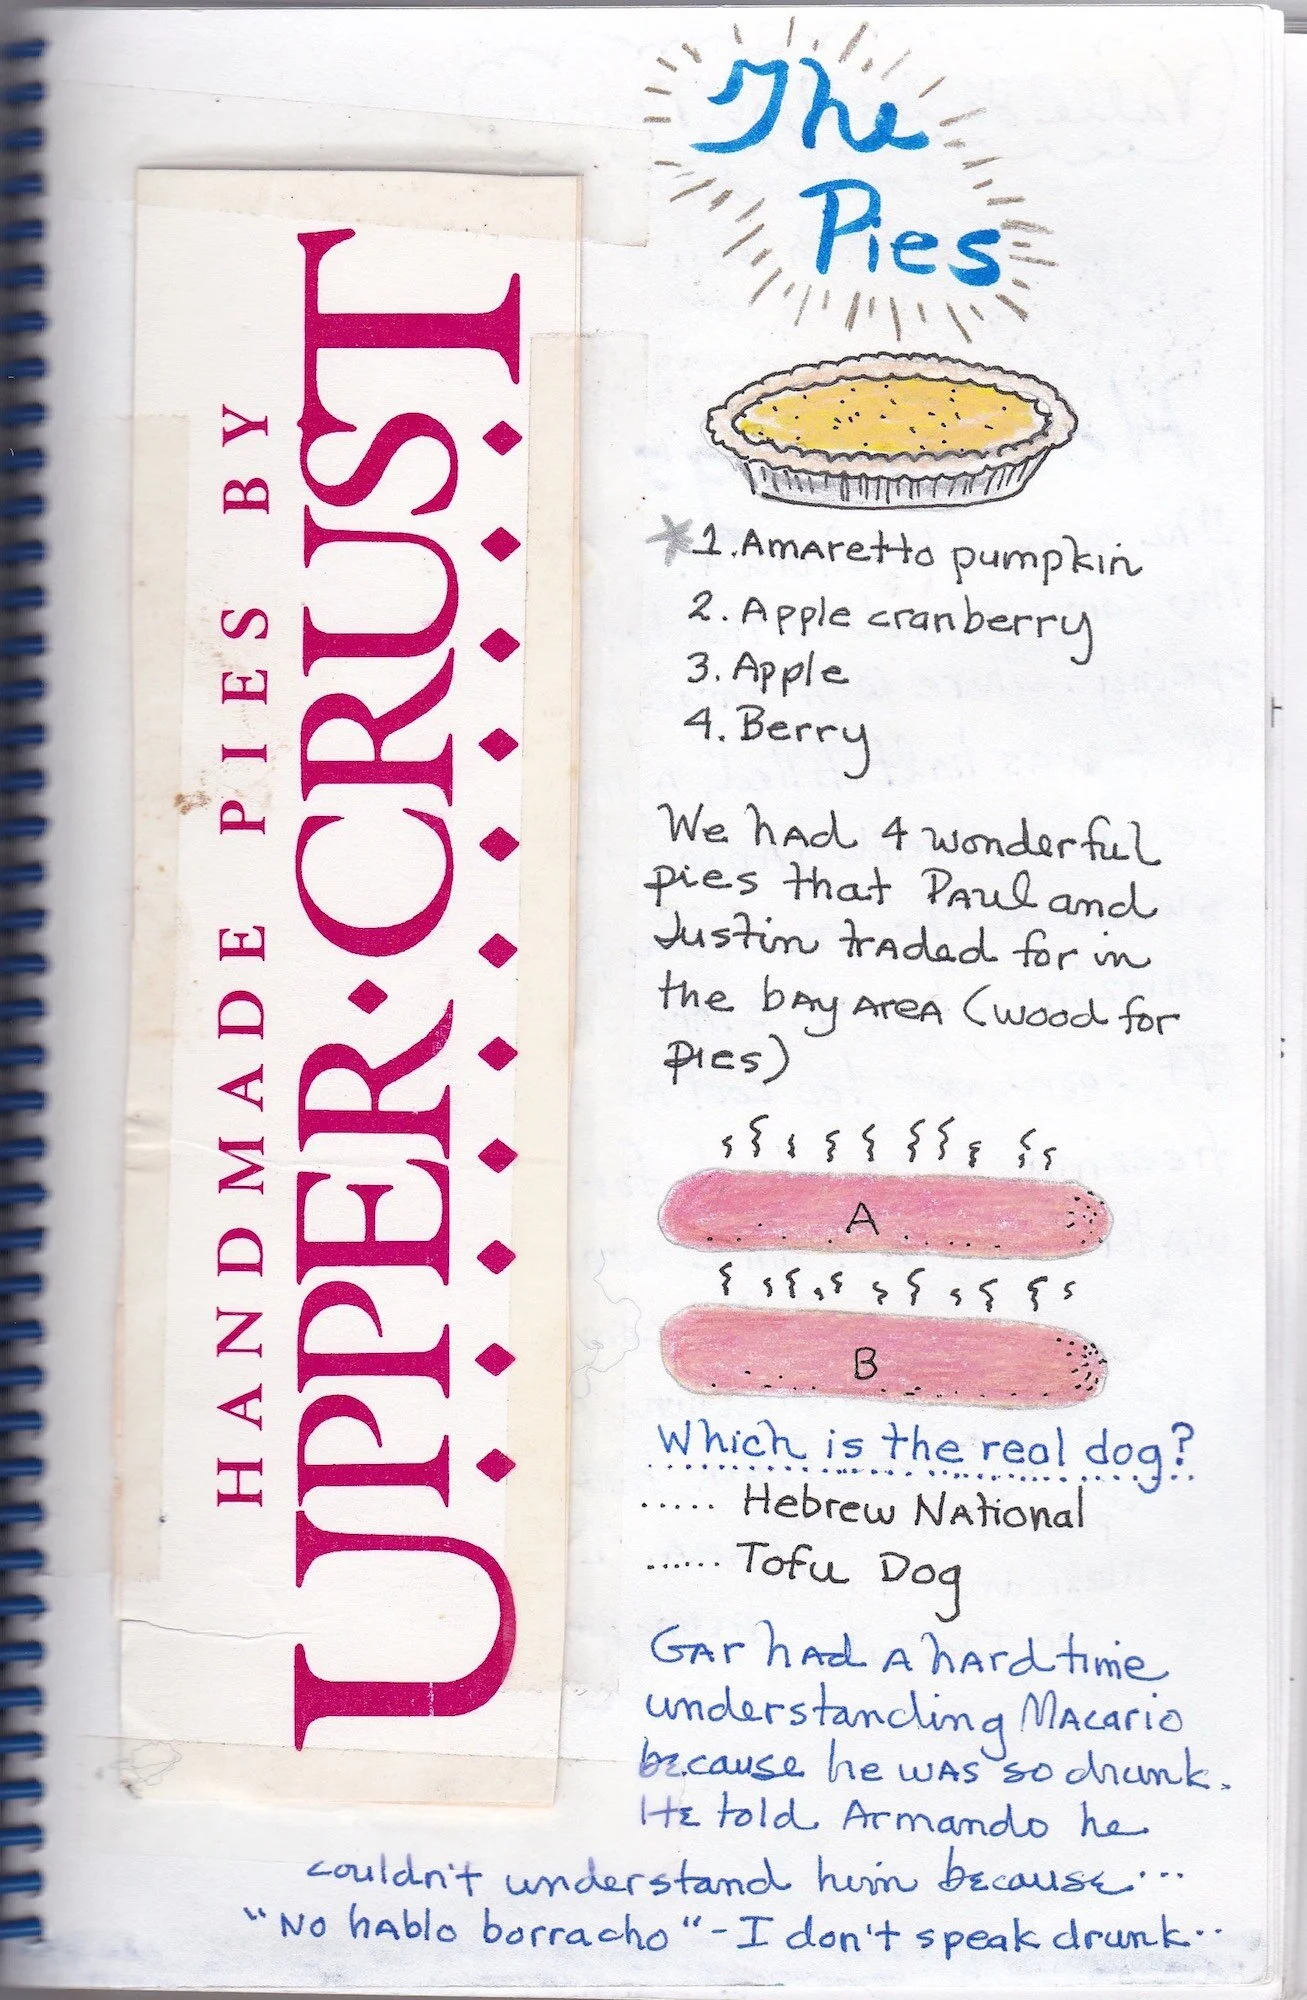 HANDMADE PIES BY
UPPER·CRUST
The
Pies
1. Amaretto pumpkin
2. Apple cranberry
3. Apple
4. Berry
We had 4 wonderful
pies that Paul and
Justin traded for in
the bay area (wood for
pies)
A
B
Which is the real dog?
..... Hebrew National
...... Tofu Dog
Gar had a hard time
understanding Macario
because he was so drunk.
He told Armando he
couldn't understand him because...
"No hablo borracho" - I don't speak drunk..